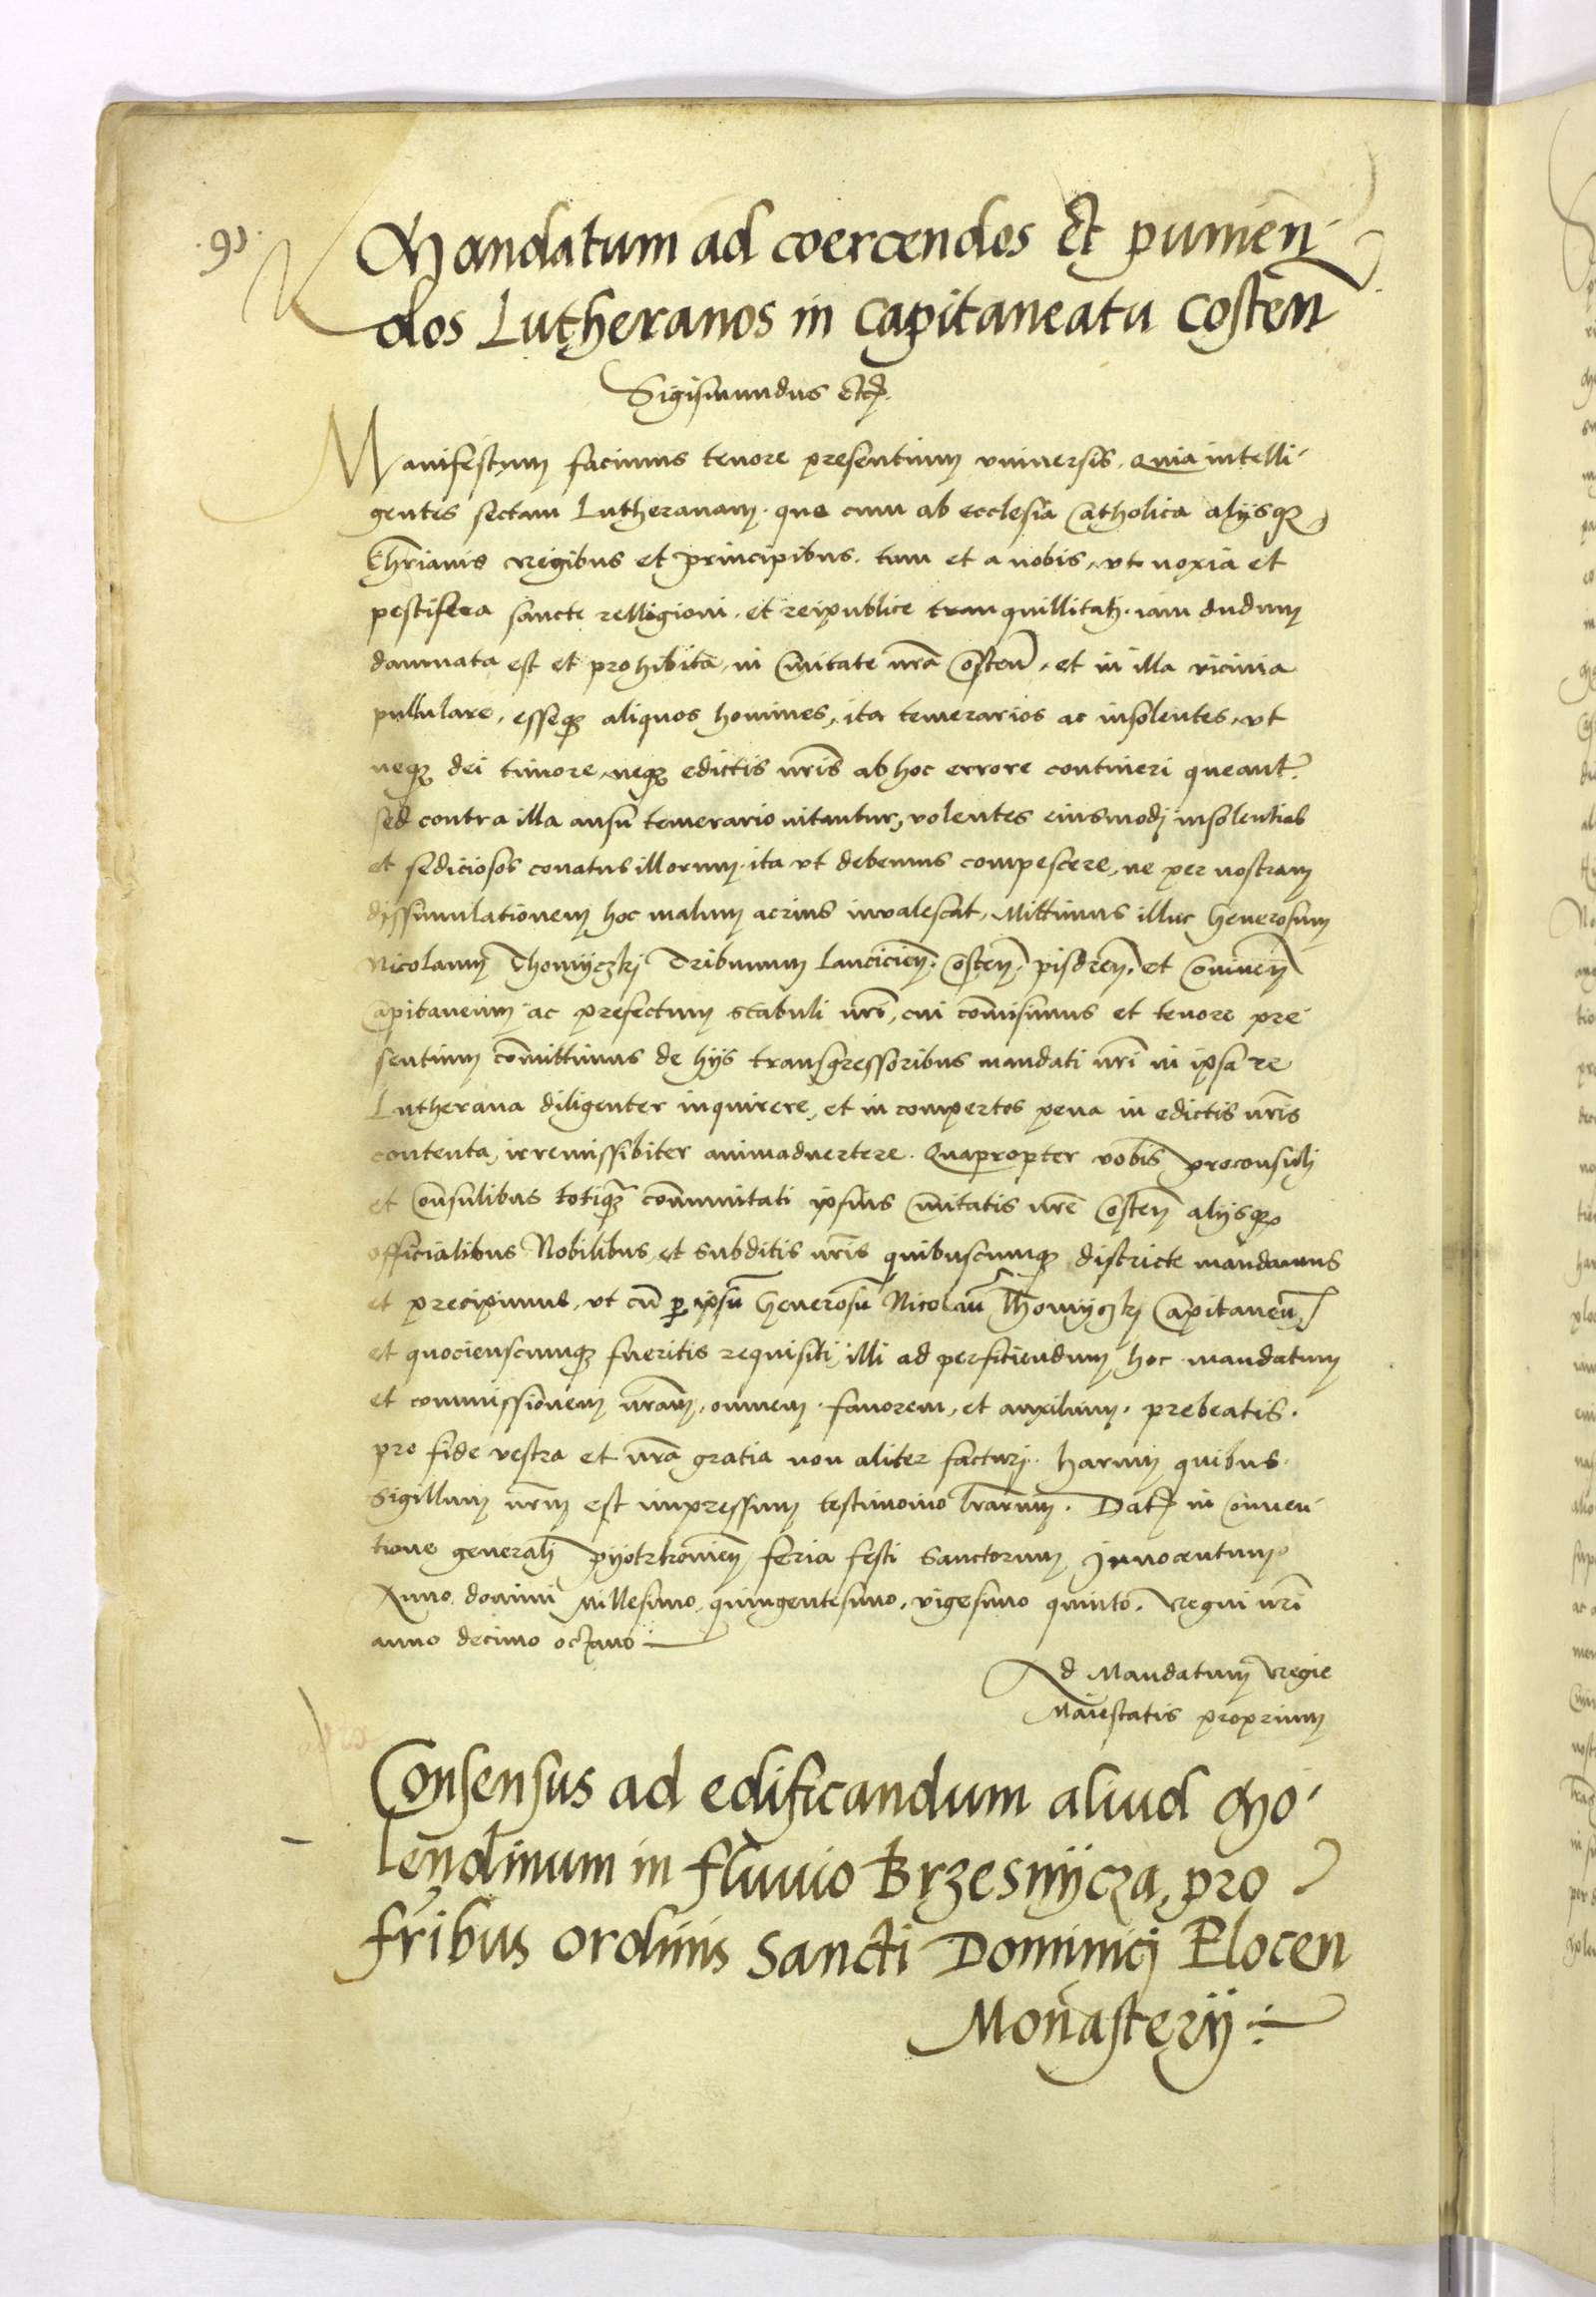 .91.
Mandatum ad coercendos Et punien-
dos Lutheranos in Capitaneatu Costen
Sigismundus Etc.
Manifestum facimus tenore presentium vniuersis. Quia intelli-
gentes sectam Lutheranam. que cum ab ecclesia Catholica alijsq3
Chrianis Regibus et principibus. tum et a nobis, vt noxia et
pestifera sancte relligioni. et reipublice tranquillitati. iam dudum
damnata est et prohibita, in Ciuitate nra Costen, et in illa vicinia
pullulare, esseq3 aliquos homines, ita temerarios ac insolentes, vt
neq3 dei timore, neq3 edictis nris ab hoc errore contineri queant.
sed contra illa ausu temerario nitantur, volentes eiusmodj insolentias
et sediciosos conatus illorum. ita vt debemus compescere, ne per nostram
dissimulationem hoc malum acrius inualescat, Mittimus illuc Generosum
Nicolaum Thomyczkj Tribunum Lancicien. Costen. pisdren. et Coninen
Capitaneum ac prefectum stabuli nri, cui comisimus et tenore pre-
sentium comittimus de hijs transgressoribus mandati nri in ipsa re
Lutherana diligenter inquirere, et in compertos pena in edictis nris
contenta, irremissibiter animaduertere. Quapropter vobis proconsulj
et Consulibus totiq3 comunitati ipsius Ciuitatis nre Costen alijsq3
officialibus Nobilibus, et subditis nris quibuscumq3 districte mandamus
et precipimus, vt cu p ipsu Generosu Nicolau Thomyczkj Capitaneu,
et quocienscumq3 fueritis requisiti, illi ad perficiendum hoc mandatum
et commissionem nram, omnem. fauorem, et auxilium. prebeatis.
pro fide vestra et nra gratia non aliter facturj. harum quibus
Sigillum nrm est impressum testimonio lrarum. Dat in Conuen-
tione generalj pyotrkouien feria festi Sanctorum Innocentum
Anno domini Millesimo, quingentesimo, vigesimo quinto. Regni nri
anno decimo octauo
Ad Mandatum Regie
Maiestatis proprium
Consensus ad edificandum aliud Mo-
lendinum in fluuio Brzesnycza, pro
fribus ordinis Sancti Dominicj Plocen
Monasterij